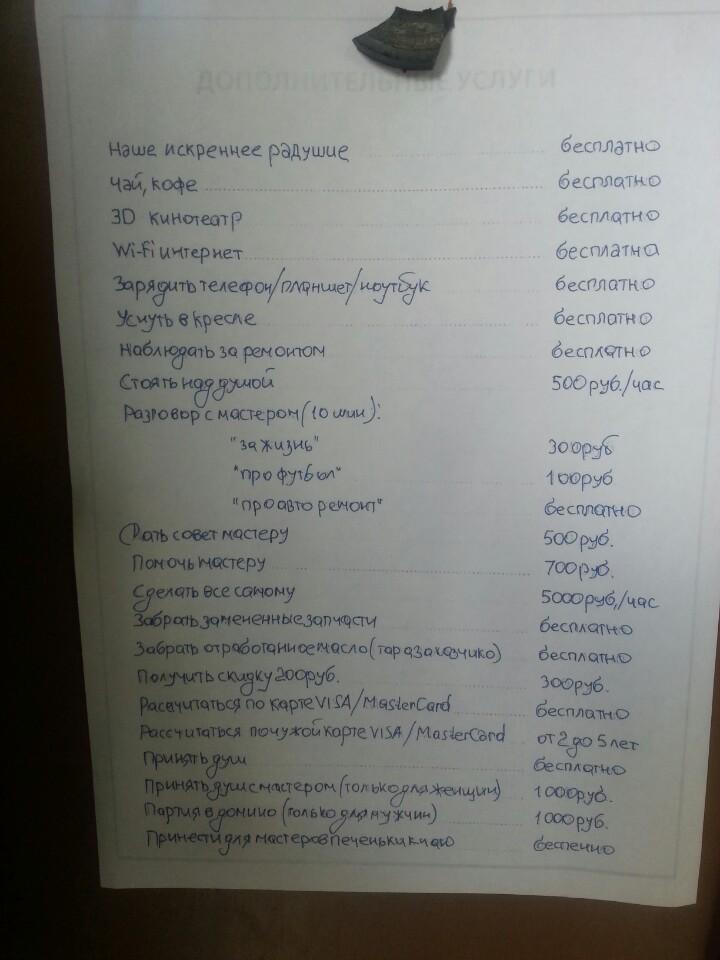 ДОПОЛНИТЕЛЬНЫЕ УСЛУГИ
Наше искреннее радушие бесплатно
Чай, кофе бесплатно
3D кинотеатр бесплатно
Wi-Fi интернет бесплатно
Зарядить телефон/планшет/ноутбук бесплатно
Уснуть в кресле бесплатно
Наблюдать за ремонтом бесплатно
Стоять над душой 500 руб./час
Разговор с мастером (10 мин):
"за жизнь" 300 руб
"про футбол" 100 руб
"про авто ремонт" бесплатно
Дать совет мастеру 500 руб.
Помочь мастеру 700 руб.
Сделать все самому 5000 руб./час
Забрать замененные запчасти бесплатно
Забрать отработанное масло (тара заказчика) бесплатно
Получить скидку 200 руб. 300 руб.
Рассчитаться по карте VISA/MasterCard бесплатно
Рассчитаться по чужой карте VISA/MasterCard от 2 до 5 лет
Принять душ бесплатно
Принять душ с мастером (только для женщин) 1000 руб.
Партия в домино (только для мужчин) 1000 руб.
Принести для мастеров печеньки к чаю бесценно